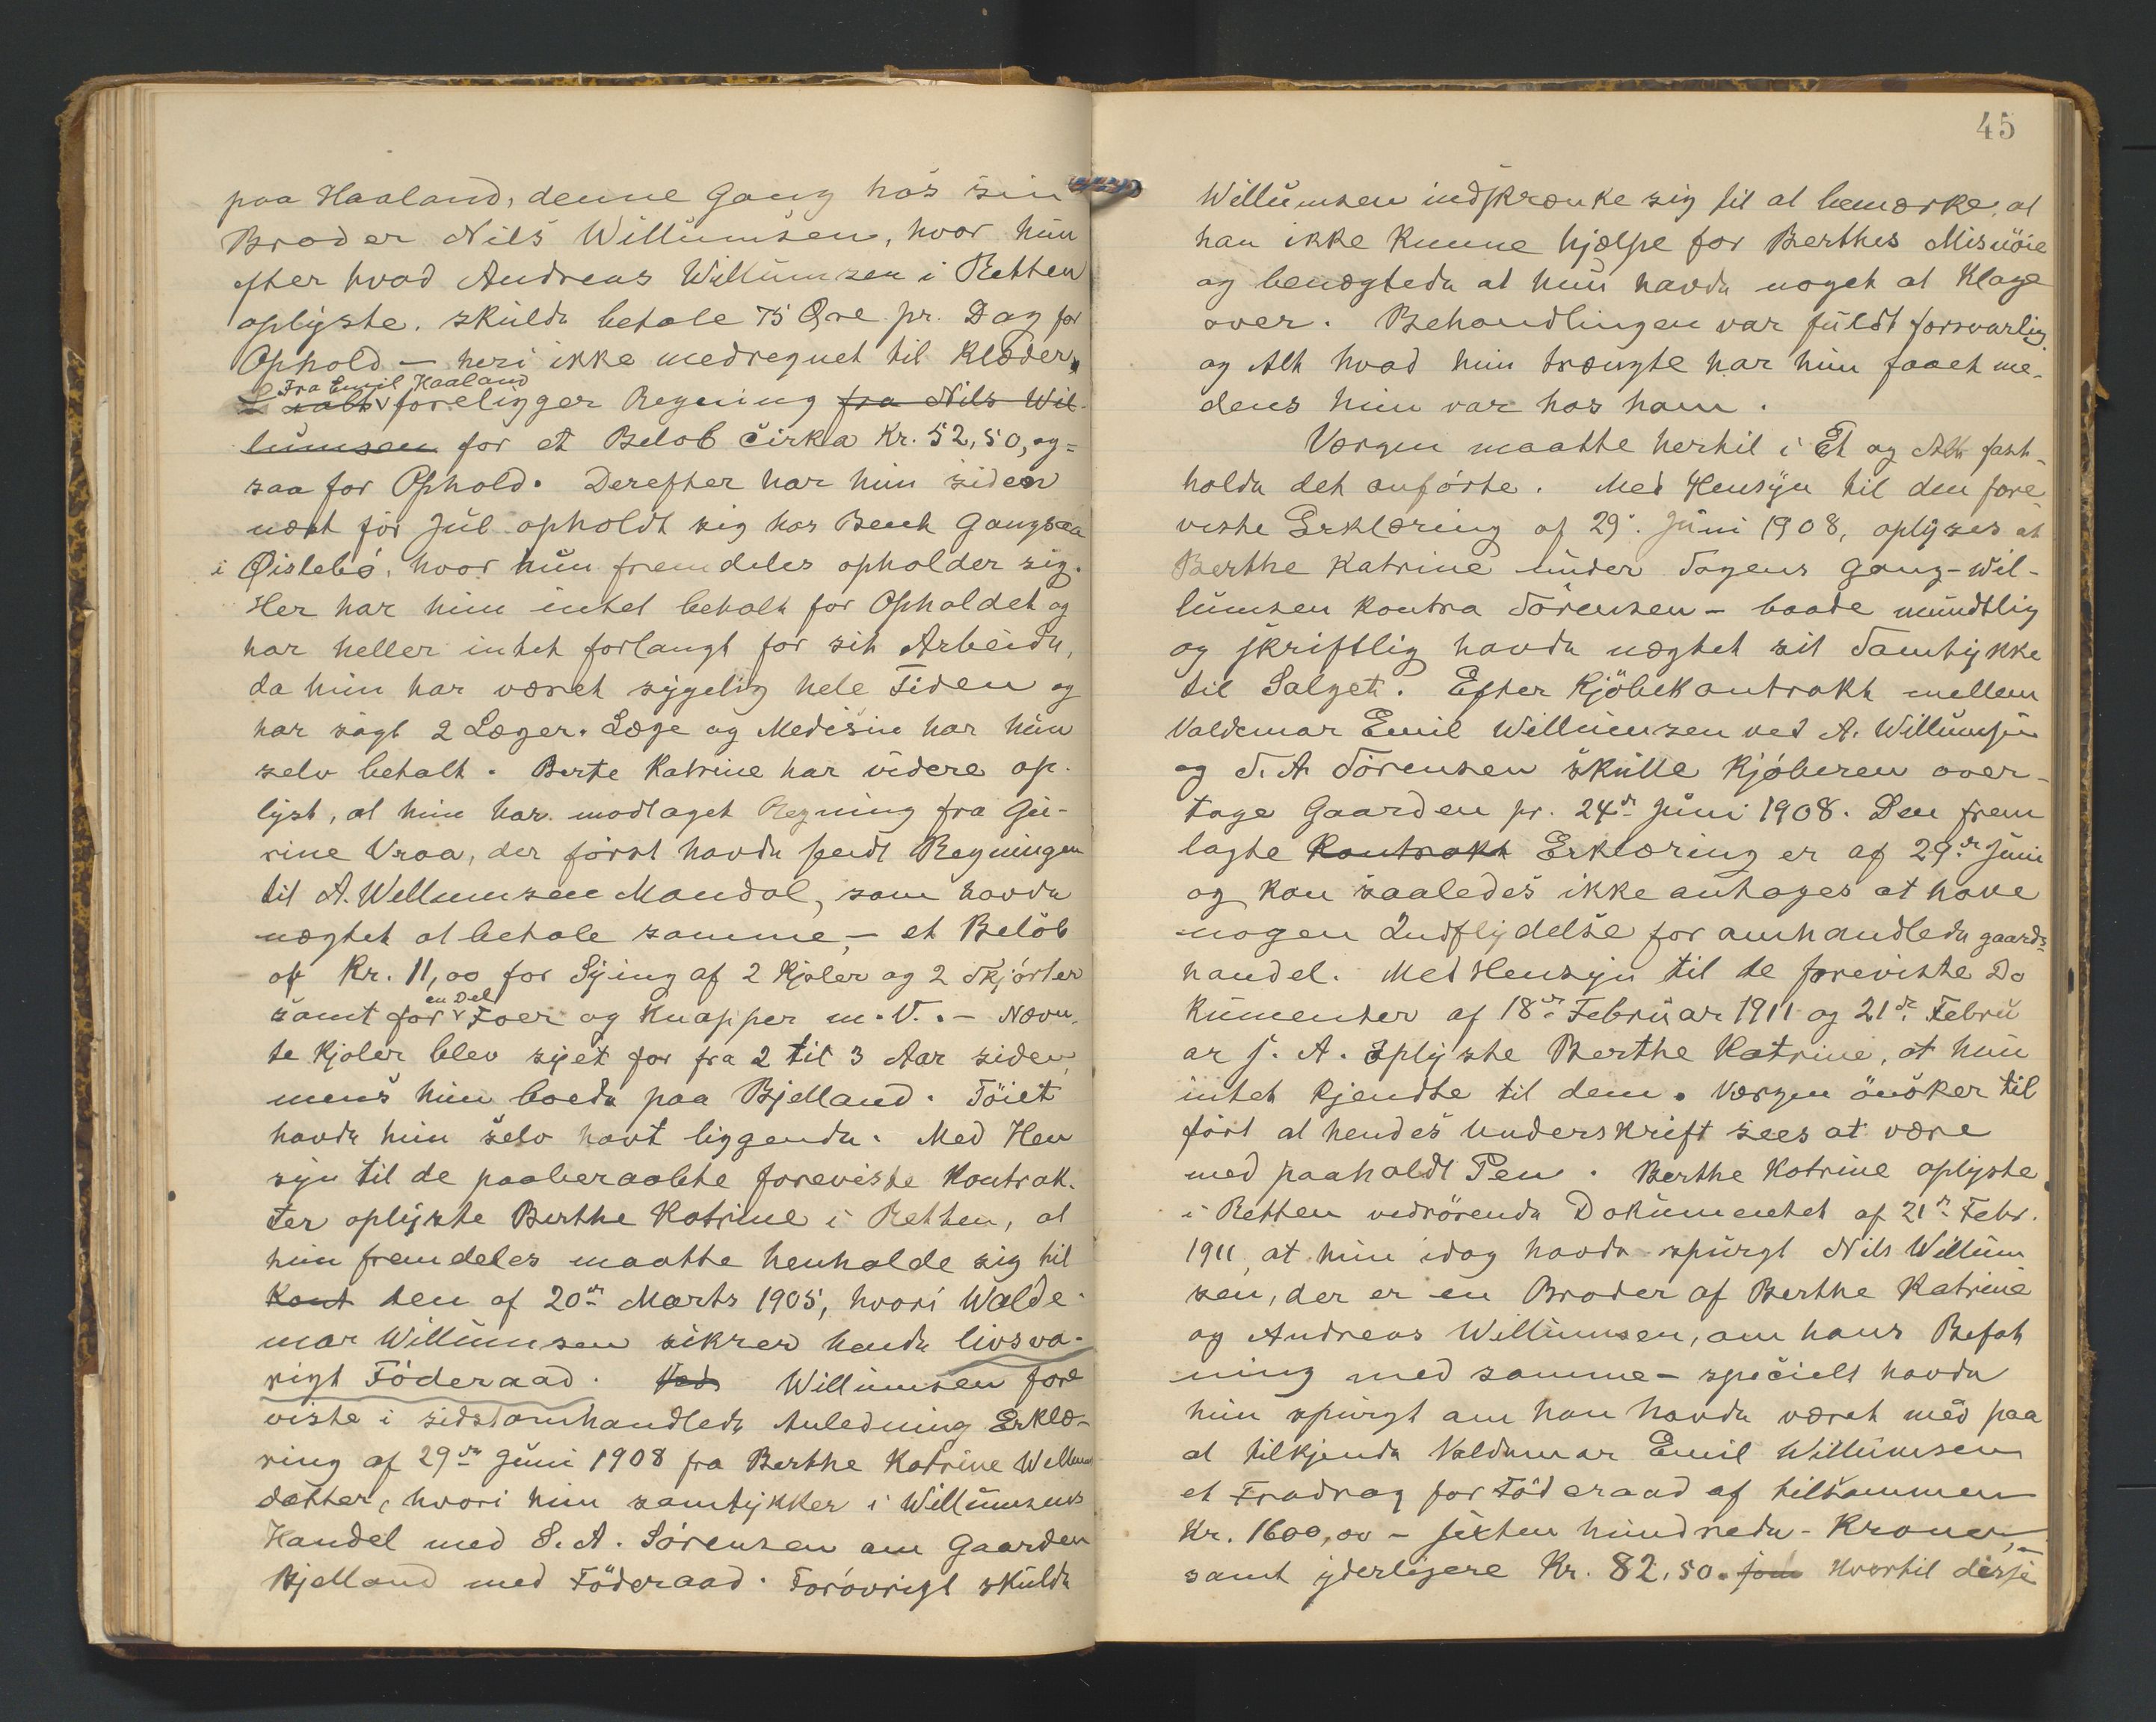 paa Haaland, denne Gang hos sin
Broder Nils Willumsen, hvor hun
efter hvad Andreas Willumsen i Retten
oplyste, skulde betale 75 Øre pr. Dag for
Ophold – heri ikke medregnet til Klæder.
Fra Emil Haaland
foreligger Regning fra Nils Wil-
lumsen for et Beløb cirka Kr. 52,50, og=
saa for Ophold. Derefter har hun siden
næst før Jul opholdt sig hos Bent Gangsaa
i Øislebø, hvor hun fremdeles opholder sig.
Her har hun intet betalt for Opholdet og
har heller intet forlangt for sit Arbeide,
da hun har været sygelig hele Tiden og
har søgt 2 Læger. Læge og Medisin har hun
selv betalt. Berte Katrine har videre op-
lyst, at hun har modtaget Regning fra Gu-
rine Vraa, der først havde sendt Regningen
til A. Willumsen Mandal, som havde
nægtet at betale samme, – et Beløb
af Kr. 11,00 for Sying af 2 Kjoler og 2 Skjørter
en Del
samt for Foer og Knapper m. V. – Nævn-
te Kjoler blev syet for fra 2 til 3 Aar siden,
mens hun boede paa Bjelland. Tøiet
havde hun selv havt liggende. Med Hen
syn til de paaberaabte foreviste Kontrak-
ter oplyste Berthe Katrine i Retten, at
hun fremdeles maatte henholde sig til
Kont den af 20de Marts 1905, hvori Walde-
mar Willumsen sikrer hende livsva-
rigt Føderaad. Ved Willumsen fore
viste i sidstomhandlede Anledning Erklæ-
ring af 29de Juni 1908 fra Berthe Katrine Willums
datter, hvori hun samtykker i Willumsens
Handel med S. A. Sørensen om Gaarden
Bjelland med Føderaad. Forøvrigt skulde
45
Willumsen indskrænke sig til at bemærke, at
han ikke kunne hjælpe for Berthes Misnøie
og benægtede at hun havde noget at klage
over. Behandlingen var fuldt forsvarlig
og Alt hvad hun trængte har hun faaet me-
dens hun var hos ham.
Værgen maatte hertil i Et og Alt fast-
holde det anførte. Med Hensyn til den fore
viste Erklæring af 29. Juni 1908, oplyses at
Berthe Katrine under Sagens Gang – Wil-
lumsen kontra Sørensen – baade mundtlig
og skriftlig havde nægtet sit Samtykke
til Salget. Efter Kjøbekontrakt mellem
Valdemar Emil Willumsen ved A. Willumsen
og S. A. Sørensen skulle Kjøberen over-
tage Gaarden pr. 24de Juni 1908. Den frem
lagte Kontrakt Erklæring er af 29de Juni
og kan saaledes ikke antages at have
nogen Indflydelse for omhandlede gaards-
handel. Med Hensyn til de foreviste Do
kumenter af 18de Februar 1911 og 21de Febru
ar s. A. oplyste Berthe Katrine, at hun
intet kjendte til dem. Værgen ønsker til
ført at hendes Underskrift sees at være
med paaholdt Pen. Berthe Katrine oplyste
i Retten vedrørende Dokumentet af 21de Febr.
1911, at hun idag havde spurgt Nils Willum
sen, der er en Broder af Berthe Katrine
og Andreas Willumsen, om hans Befat
ning med samme – specielt havde
hun spurgt om han havde været med paa
at tilkjende Valdemar Emil Willumsen
et Fradrag for Føderaad af tilsammen
Kr. 1600,00 – sixten hundrede – Kroner,
samt yderligere Kr. 82,50. som Hvortil disse